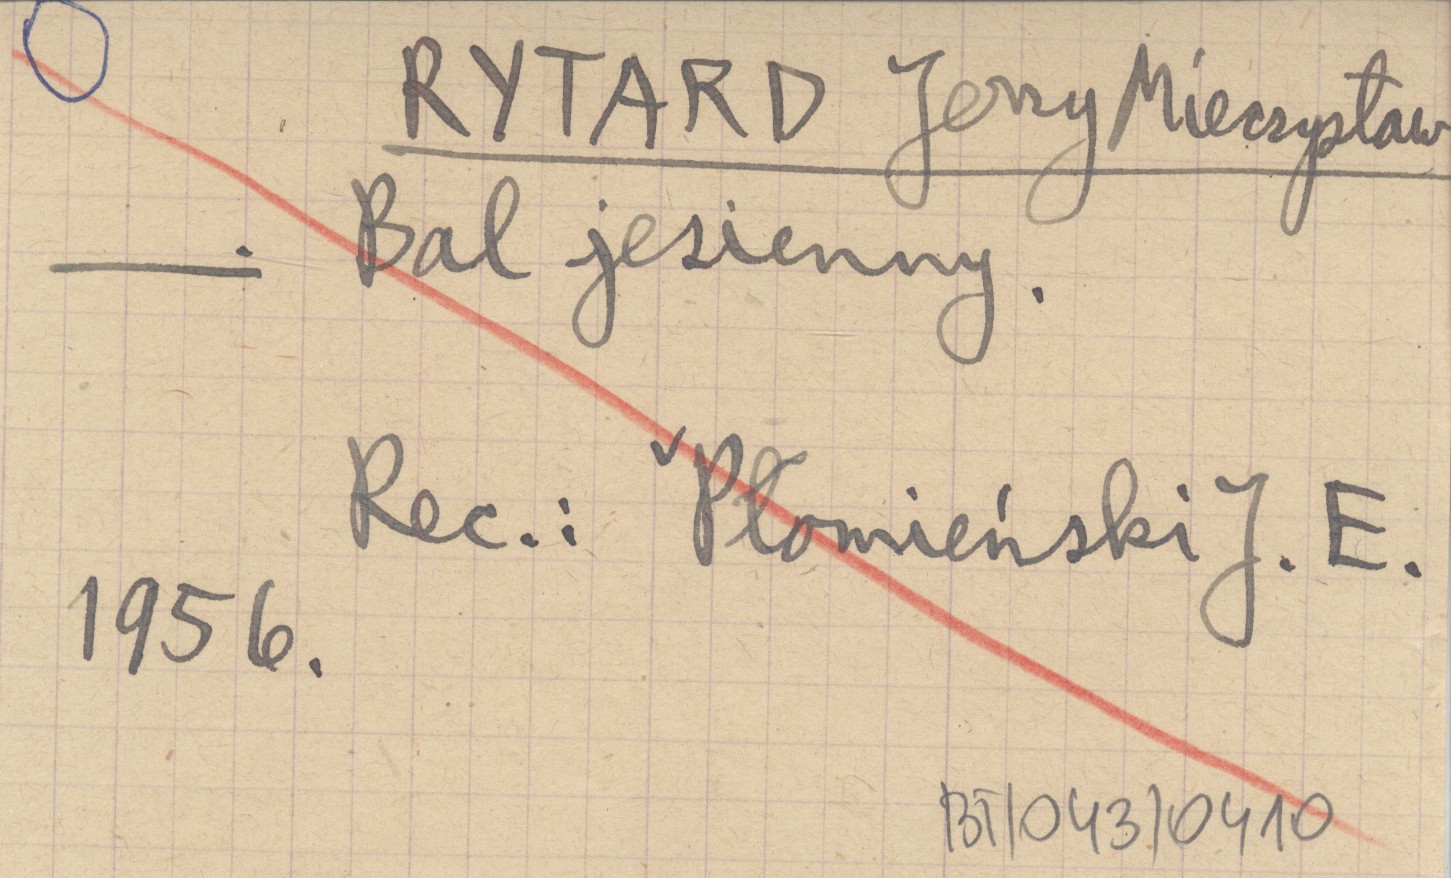 RYTARD Jerzy Mieczysław
——. Bal jesienny.
Rec.: ✓ Płomieński J. E.
1956.
BT/043/0410